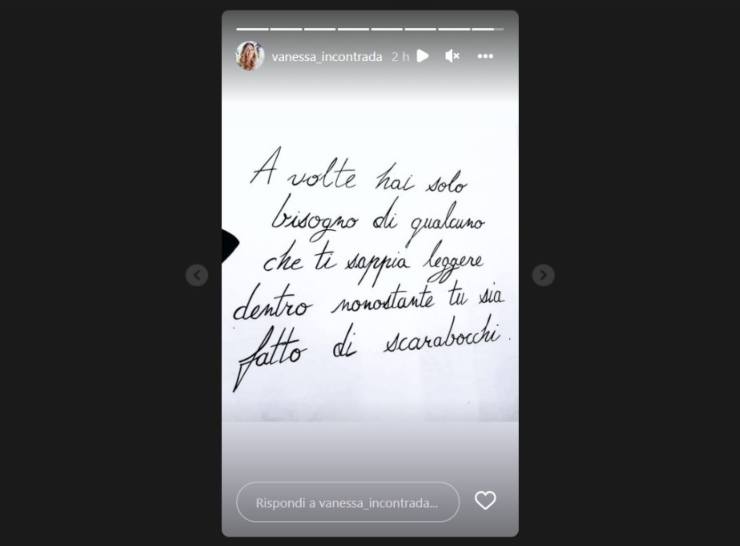 vanessa_incontrada 2 h
A volte hai solo
bisogno di qualcuno
che ti sappia leggere
dentro nonostante tu sia
fatto di scarabocchi.
Rispondi a vanessa_incontrada...